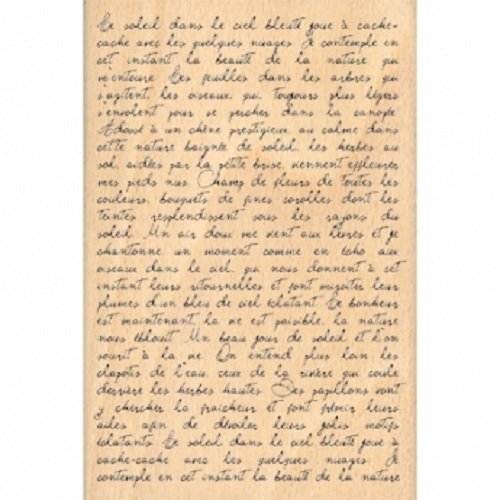 Le soleil dans le ciel bleuté joue à cache-
cache avec les quelques nuages Je contemple en
cet instant la beauté de la nature qui
m'entoure Les feuilles dans les arbres qui
s'agitent, les oiseaux, qui, toujours plus légers
s'envolent pour se percher dans la canopée
Adossé à un chêne prestigieux, au calme dans
cette nature baignée de soleil, les herbes au
sol, aidées par la petite brise, viennent effleurer
mes pieds nus Champ de fleurs de toutes les
couleurs, bouquets de fines corolles dont les
teintes resplendissent sous les rayons du
soleil Un air doux me vient aux lèvres et je
chantonne un moment comme en écho aux
oiseaux dans le ciel, qui nous donnent à cet
instant leurs ritournelles et font miroiter leurs
plumes d'un bleu de ciel éclatant Le bonheur
est maintenant, la vie est paisible, la nature
nous éblouit Un beau jour de soleil et l'on
sourit à la vie On entend plus loin les
clapotis de l'eau, ceux de la rivière qui coule
derrière les herbes hautes Des papillons vont
y chercher la fraîcheur et font frémir leurs
ailes afin de dévoiler leurs jolis motifs
éclatants Le soleil dans le ciel bleuté joue à
cache-cache avec les quelques nuages Je
contemple en cet instant la beauté de la nature